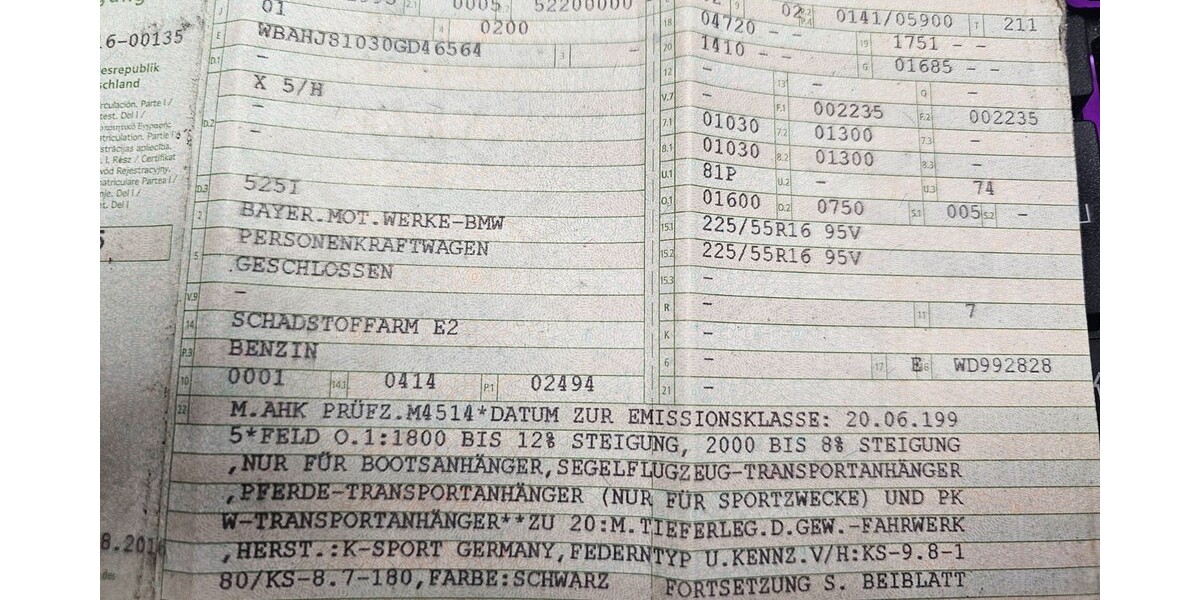 01
0200
WBAHJ81030GD46564
-
-
X 5/H
-
-
525I
BAYER.MOT.WERKE-BMW
PERSONENKRAFTWAGEN
GESCHLOSSEN
-
SCHADSTOFFARM E2
BENZIN
0001 14.1 0414 P.1 02494
0141/05900 T 211
18 04720 - - 19 1751 - -
20 1410 - - G 01685 - -
12 - 13 - Q -
V.7 - F.1 002235 F.2 002235
7.1 01030 7.2 01300 7.3 -
8.1 01030 8.2 01300 8.3 -
U.1 81P U.2 - U.3 74
O.1 01600 O.2 0750 S.1 005 S.2 -
15.1 225/55R16 95V
15.2 225/55R16 95V
15.3 -
R - 11 7
K -
6 - 17 E 16 WD992828
21 -
22 M.AHK PRÜFZ.M4514*DATUM ZUR EMISSIONSKLASSE: 20.06.199
5*FELD O.1:1800 BIS 12% STEIGUNG, 2000 BIS 8% STEIGUNG
,NUR FÜR BOOTSANHÄNGER,SEGELFLUGZEUG-TRANSPORTANHÄNGER
,PFERDE-TRANSPORTANHÄNGER (NUR FÜR SPORTZWECKE) UND PK
W-TRANSPORTANHÄNGER**ZU 20:M.TIEFERLEG.D.GEW.-FAHRWERK
,HERST.:K-SPORT GERMANY,FEDERNTYP U.KENNZ.V/H:KS-9.8-1
80/KS-8.7-180,FARBE:SCHWARZ FORTSETZUNG S. BEIBLATT